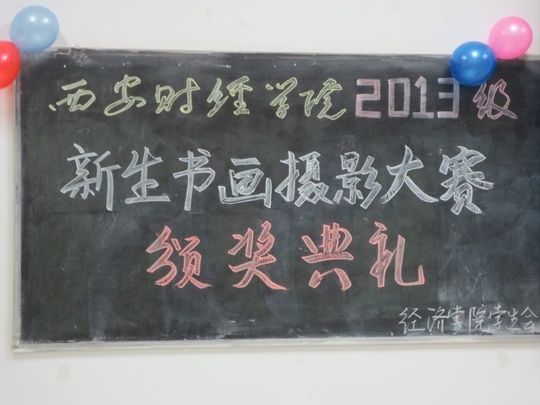 西安财经学院2013级
新生书画摄影大赛
颁奖典礼
经济学院学生会